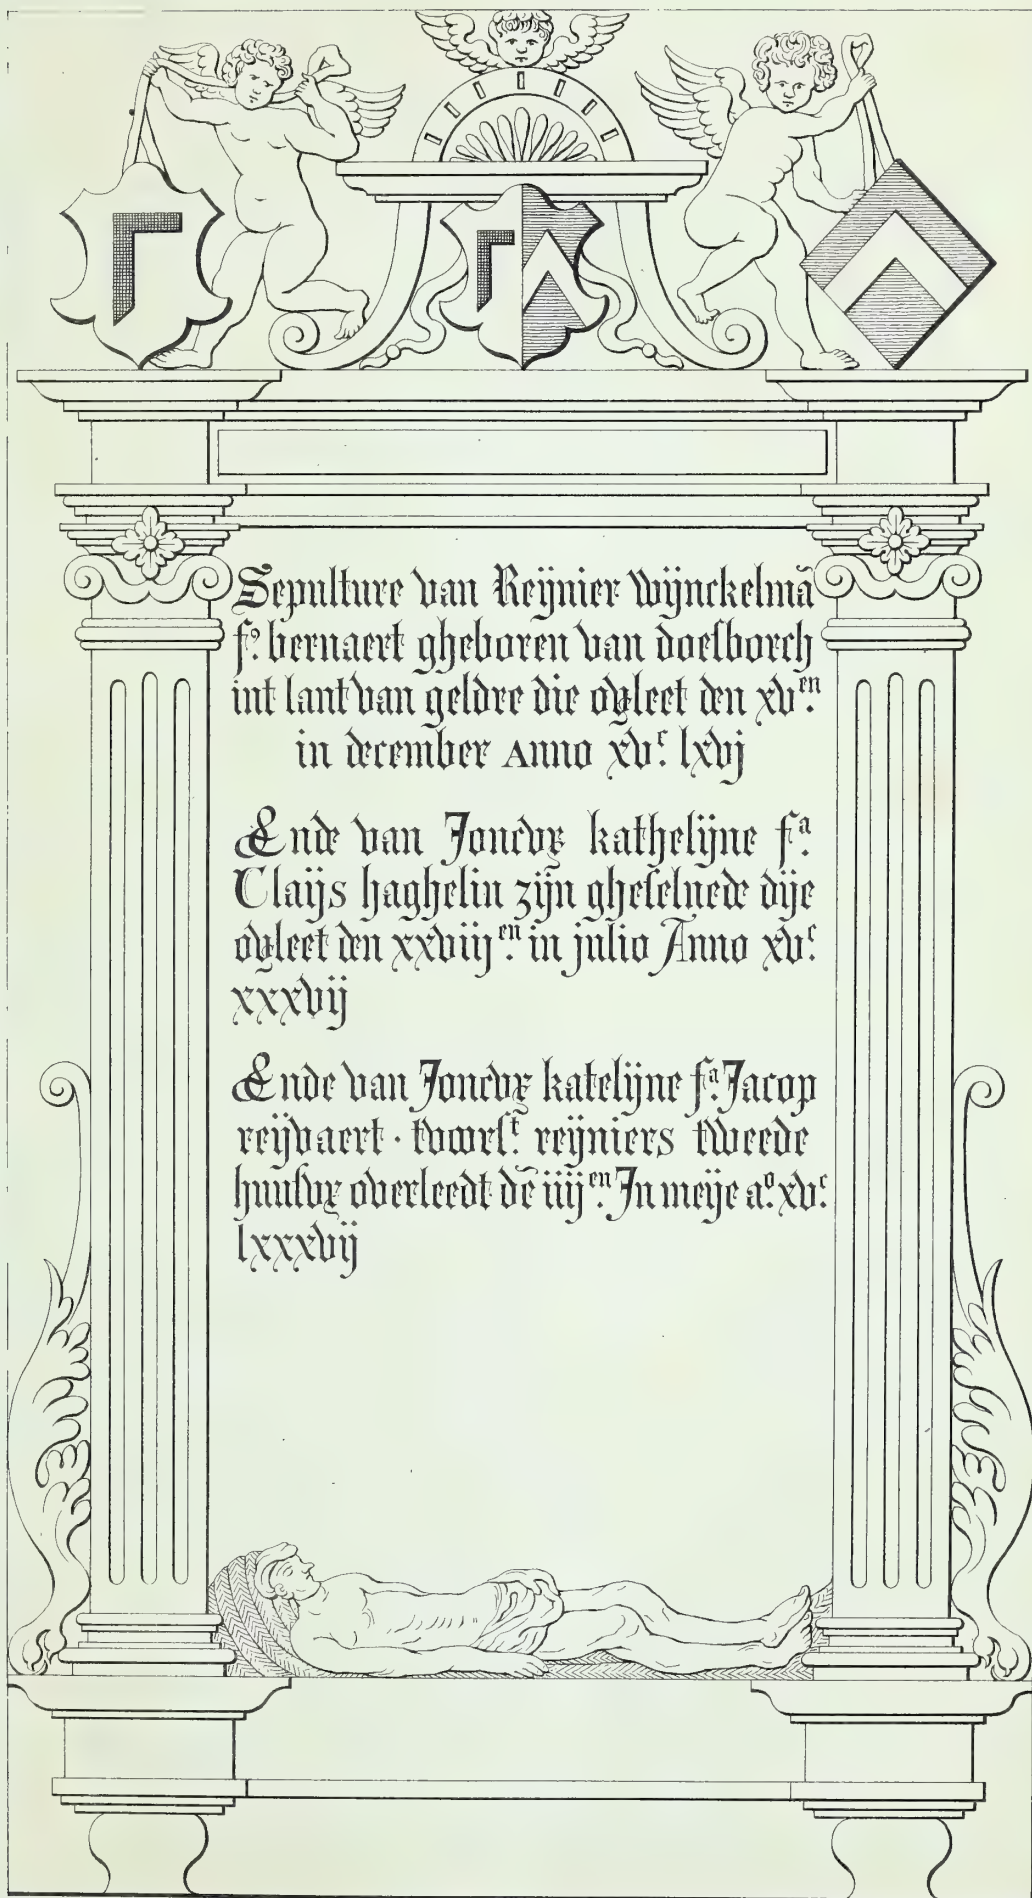 Sepulture van Reijnier wijnckelmā
fꝰ. bernaert gheboren van doesborch
int lant van geldre die ovʳleet den xvᵉⁿ.
in december Anno xvᶜ. lxvj
Ende van Joncvʳ kathelijne fᵃ.
Claijs haghelin zijn gheselnede dije
ovʳleet den xxviijᵉⁿ. in julio Anno xvᶜ.
xxxvij
Ende van Joncvʳ katelijne fᵃ. Jacop
reijvaert · tvoorsᵗ. reijniers tweede
huusvʳ overleedt dē iiijᵉⁿ. In meije aᵒ. xvᶜ.
lxxxvij